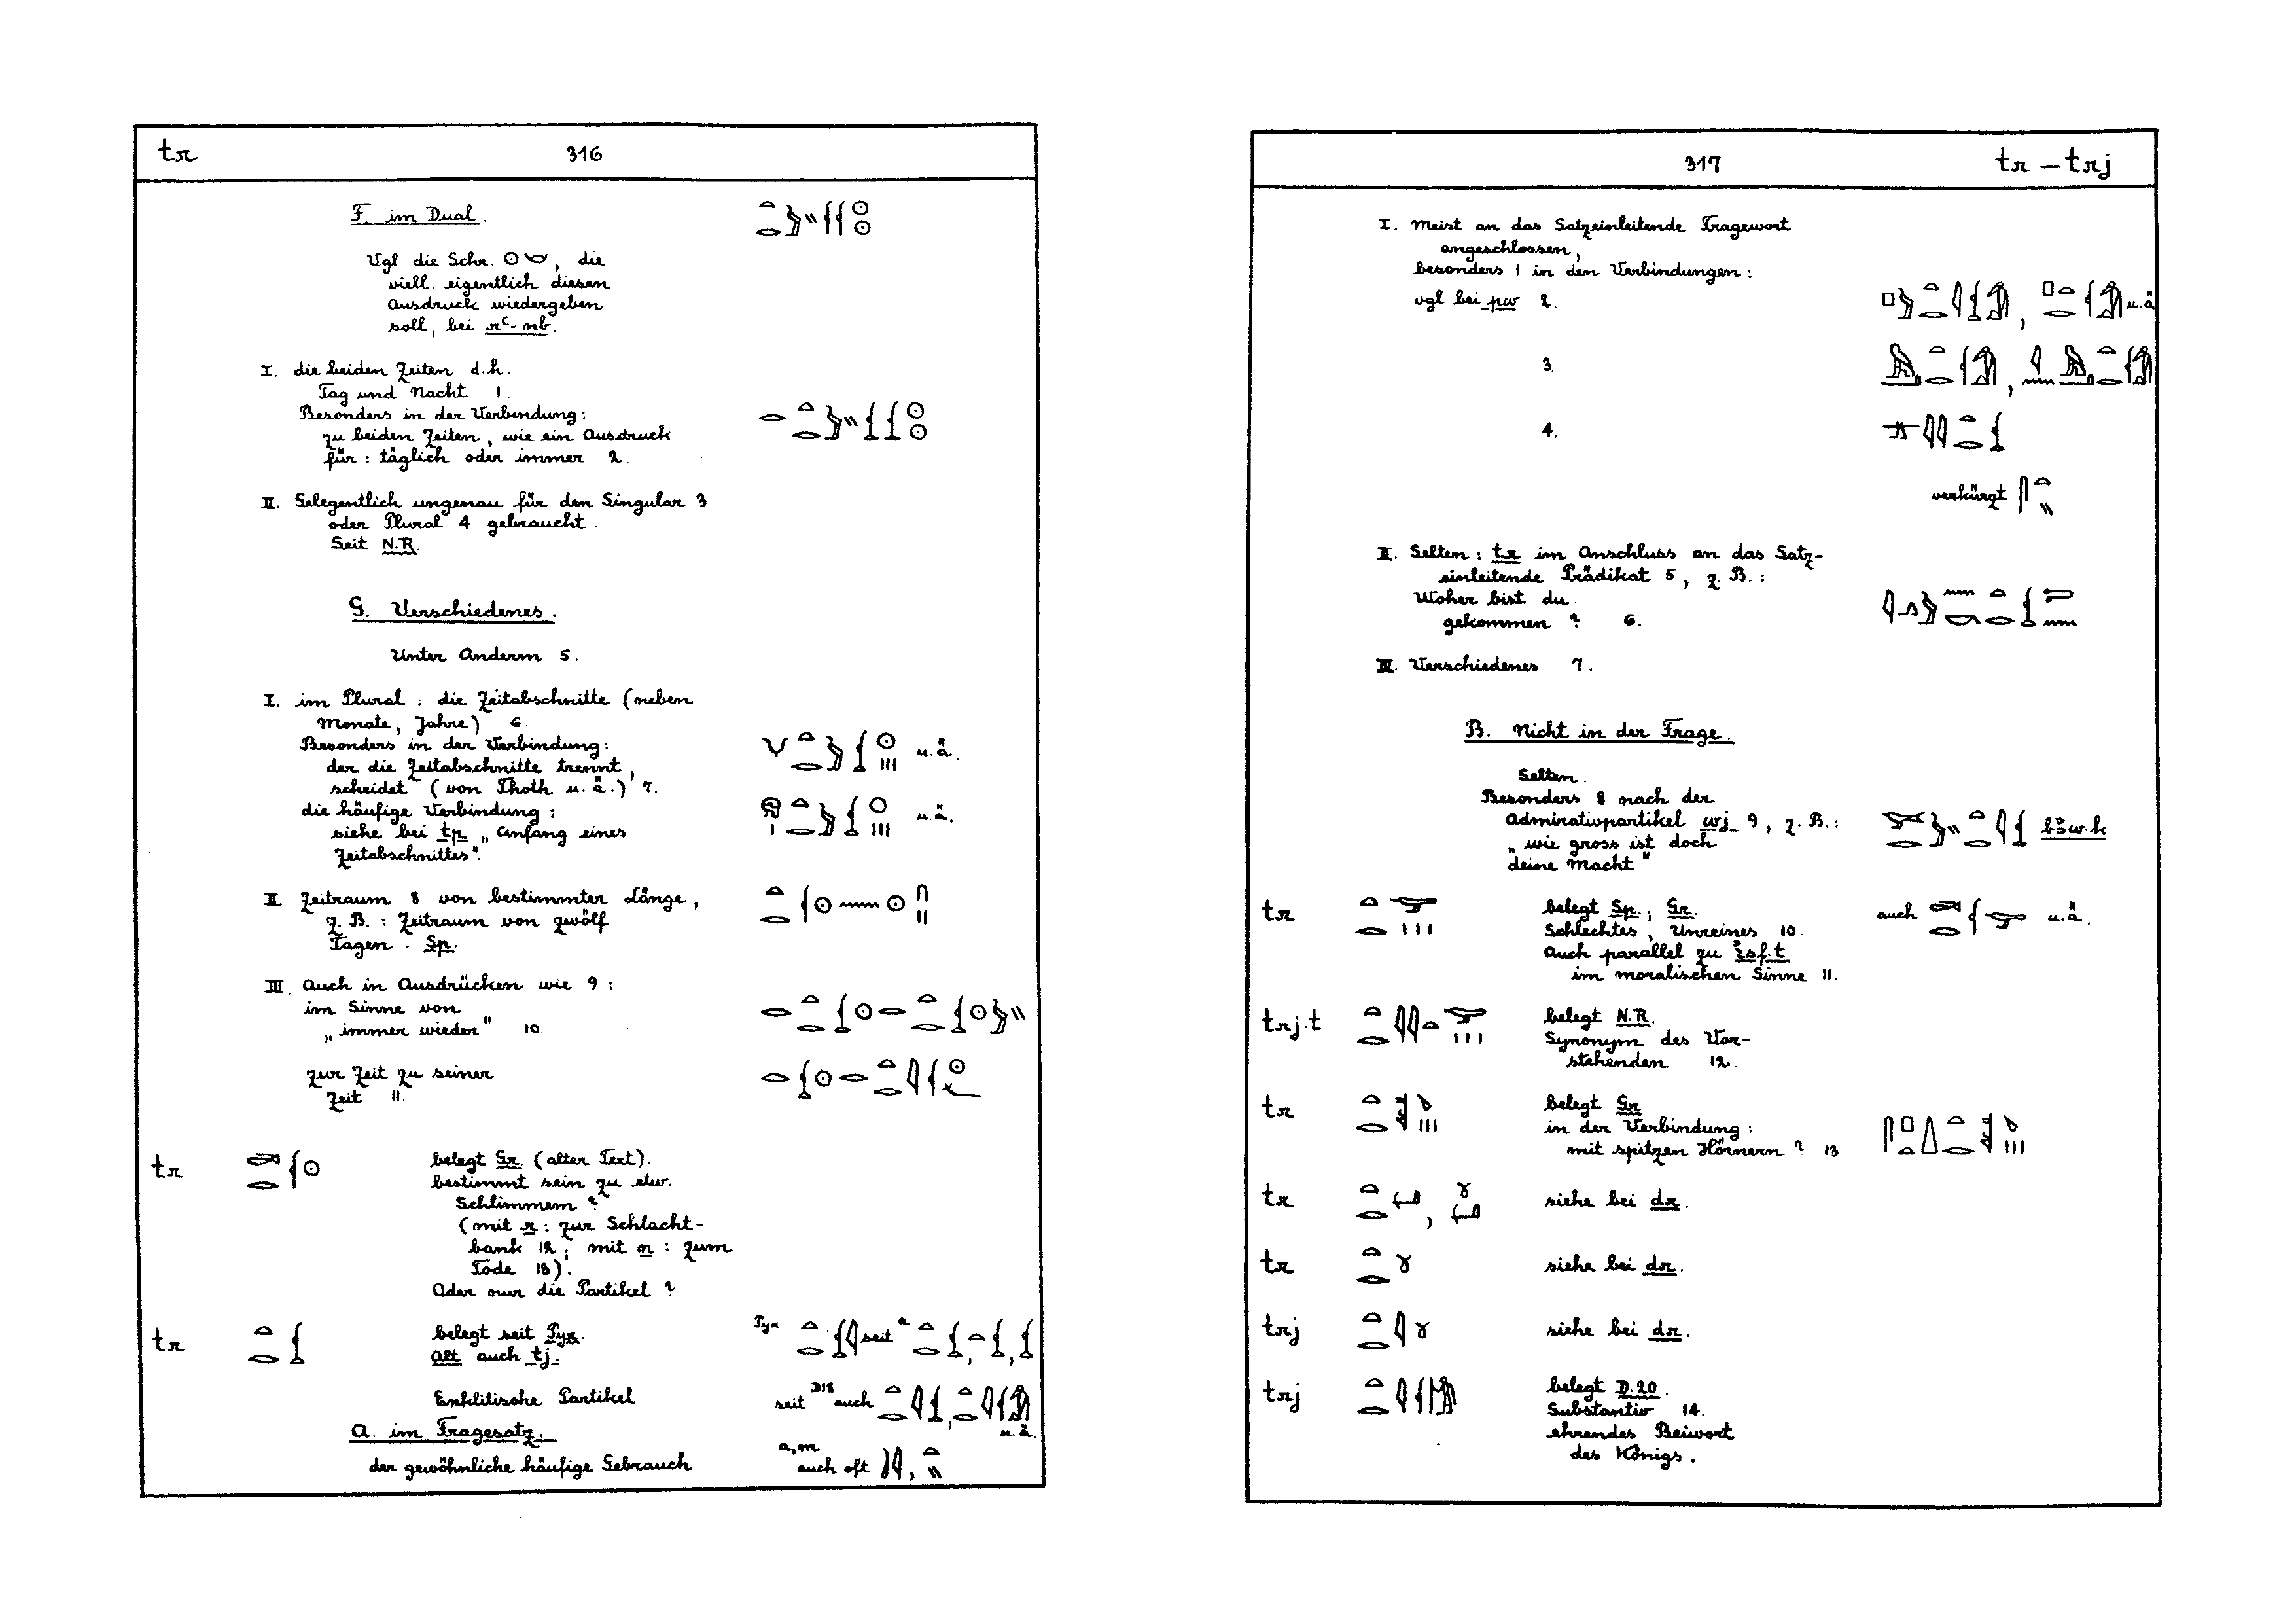 tr 316
F. im Dual.
Vgl die Schr. 𓇳𓎟, die
viell. eigentlich diesen
Ausdruck wiedergeben
soll, bei rꜥ-nb.
I. die beiden Zeiten d.h.
Tag und Nacht 1.
Besonders in der Verbindung:
zu beiden Zeiten, wie ein Ausdruck
für: täglich oder immer 2.
II. Gelegentlich ungenau für den Singular 3
oder Plural 4 gebraucht.
Seit N.R.
G. Verschiedenes.
Unter Anderm 5.
I. im Plural: die Zeitabschnitte (neben
Monate, Jahre) 6.
Besonders in der Verbindung:
der die Zeitabschnitte trennt, u.ä.
scheidet (von Thoth u.ä.) 7.
die häufige Verbindung: u.ä.
siehe bei tp „Anfang eines
Zeitabschnittes".
II. Zeitraum 8 von bestimmter Länge,
z.B.: Zeitraum von zwölf
Tagen. Sp.
III. Auch in Ausdrücken wie 9:
im Sinne von
„immer wieder" 10.
zur Zeit zu seiner
Zeit 11.
tr belegt Gr. (alter Text).
bestimmt sein zu etw.
Schlimmem?
(mit r: zur Schlacht-
bank 12; mit n: zum
Tode 13).
Oder nur die Partikel?
tr belegt seit Pyr. Pyr seit a
alt auch tj.
Enklitische Partikel seit D18 auch
A. im Fragesatz. u.ä.
der gewöhnliche häufige Gebrauch a,m auch oft
317 tr – trj
I. Meist an das Satzeinleitende Fragewort
angeschlossen,
besonders 1 in den Verbindungen:
vgl bei pw 2. u.ä
3.
4.
verkürzt
II. Selten: tr im Anschluss an das Satz-
einleitende Prädikat 5, z.B.:
Woher bist du
gekommen? 6.
III. Verschiedenes 7.
B. Nicht in der Frage.
Selten.
Besonders 8 nach der
Admirativpartikel wj 9, z.B.: bꜣw.k
„wie gross ist doch
deine Macht"
tr belegt Sp.; Gr. auch u.ä.
Schlechtes, Unreines 10.
Auch parallel zu ı͗sf.t
im moralischen Sinne 11.
trj.t belegt N.R.
Synonym des Vor-
stehenden 12.
tr belegt Gr
in der Verbindung:
mit spitzen Hörnern? 13
tr siehe bei dr.
tr siehe bei dr.
trj siehe bei dr.
trj belegt D.20.
Substantiv 14.
ehrendes Beiwort
des Königs.